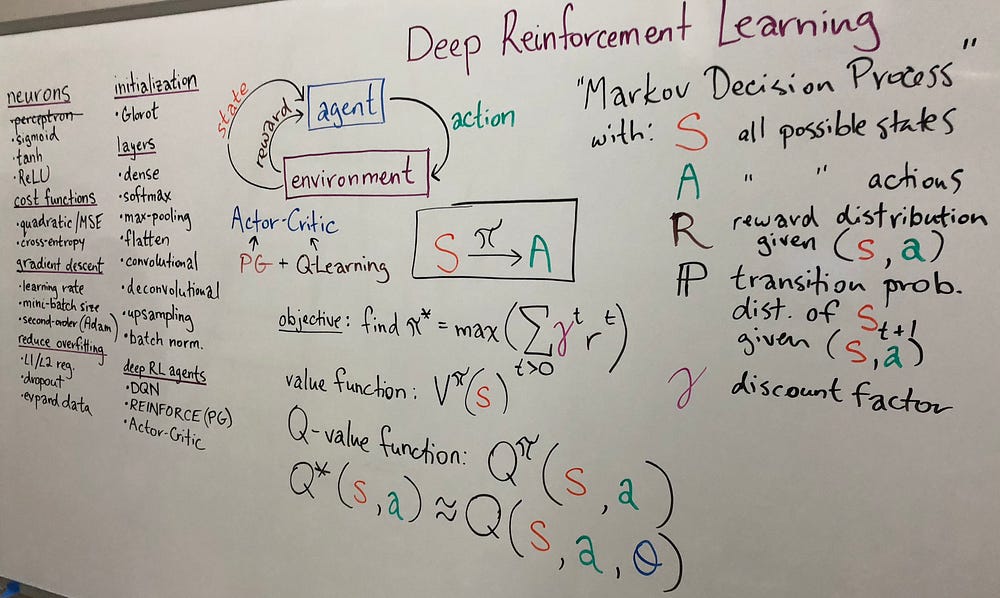 Deep Reinforcement Learning
neurons
perceptron
• sigmoid
• tanh
• ReLU
cost functions
• quadratic/MSE
• cross-entropy
gradient descent
• learning rate
• mini-batch size
• second-order (Adam)
reduce overfitting
• L1/L2 reg.
• dropout
• expand data
initialization
• Glorot
layers
• dense
• softmax
• max-pooling
• flatten
• convolutional
• deconvolutional
• upsampling
• batch norm.
deep RL agents
• DQN
• REINFORCE (PG)
• Actor-Critic
state
reward
agent
action
environment
Actor-Critic
PG + Q-Learning
S π→ A
objective: find π* = max(∑ γᵗ rᵗ)
t>0
value function: V^π(s)
Q-value function: Q^π(s, a)
Q*(s, a) ≈ Q(s, a, θ)
"Markov Decision Process"
with: S all possible states
A " " actions
R reward distribution
given (s, a)
ℙ transition prob.
dist. of s_t+1
given (s, a)
γ discount factor